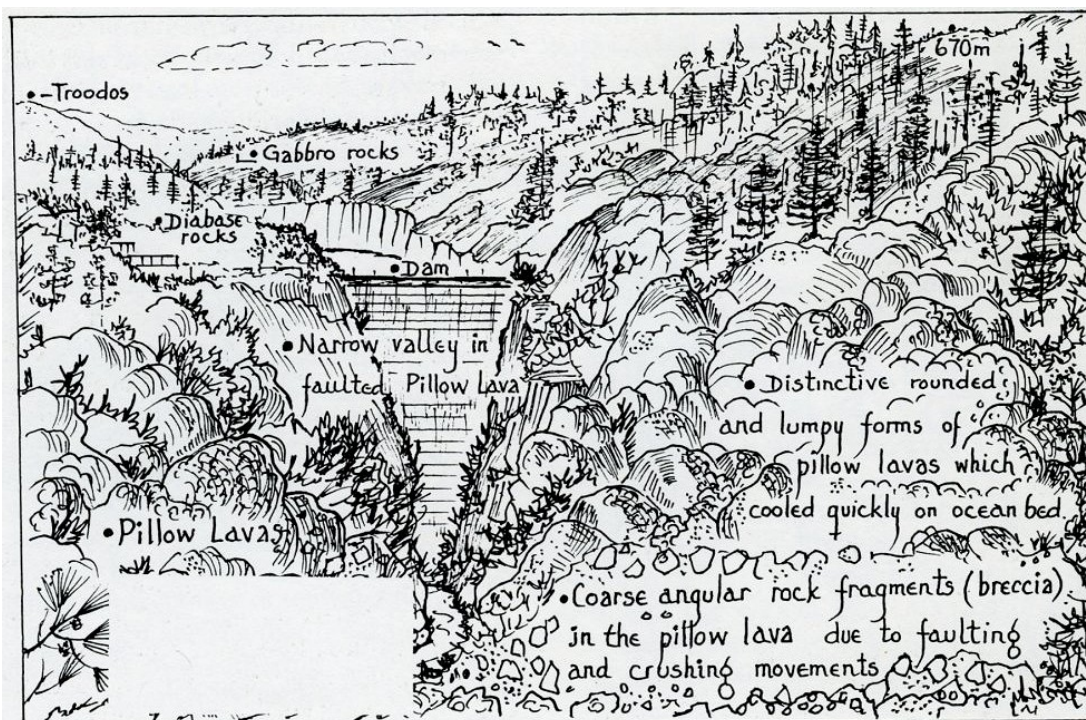 670m
Troodos
Gabbro rocks
Diabase
rocks
Dam
Narrow valley in
faulted Pillow Lava
Distinctive rounded
and lumpy forms of
pillow lavas which
cooled quickly on ocean bed
Pillow Lavas
Coarse angular rock fragments (breccia)
in the pillow lava due to faulting
and crushing movements